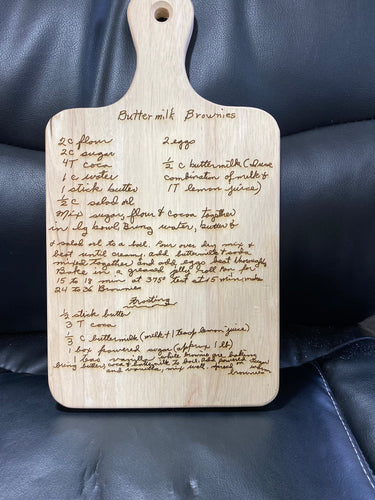 Buttermilk Brownies
2c flour
2c sugar
4T coca
1c water
1 stick butter
½ c salad oil
2 eggs
½ c buttermilk (I use
combination of milk &
1T lemon juice)
Mix sugar, flour & cocoa together
in lg bowl. Bring water, butter
& salad oil to a boil. Pour over dry mix &
beat until creamy. add buttermilk & soda
mixed together and add eggs beat thoroughly
Bake in a greased jelly roll pan for
15 to 18 min at 375° test at 15 min. makes
24 to 36 Brownies
Frosting
½ stick butter
3 T coca
⅓ c buttermilk (milk + 1 teasp lemon juice)
1 box powered sugar (approx 1 lb)
1 teas vanilla While brownies are baking
bring butter, coca & buttermilk to boil. add powered sugar
and vanilla, mix well. spread on warm
brownies